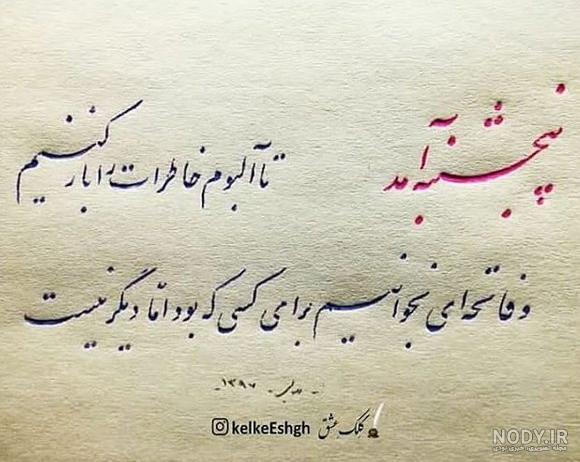 پنجشنبه آمد تا آلبوم خاطرات را باز کنیم
و فاتحه‌ای بخوانیم برای کسی که بود امّا دیگر نیست
۱۳۹۷
kelkeEshgh کلک عشق
NODY.IR
مجله تصویری، خبری نودی